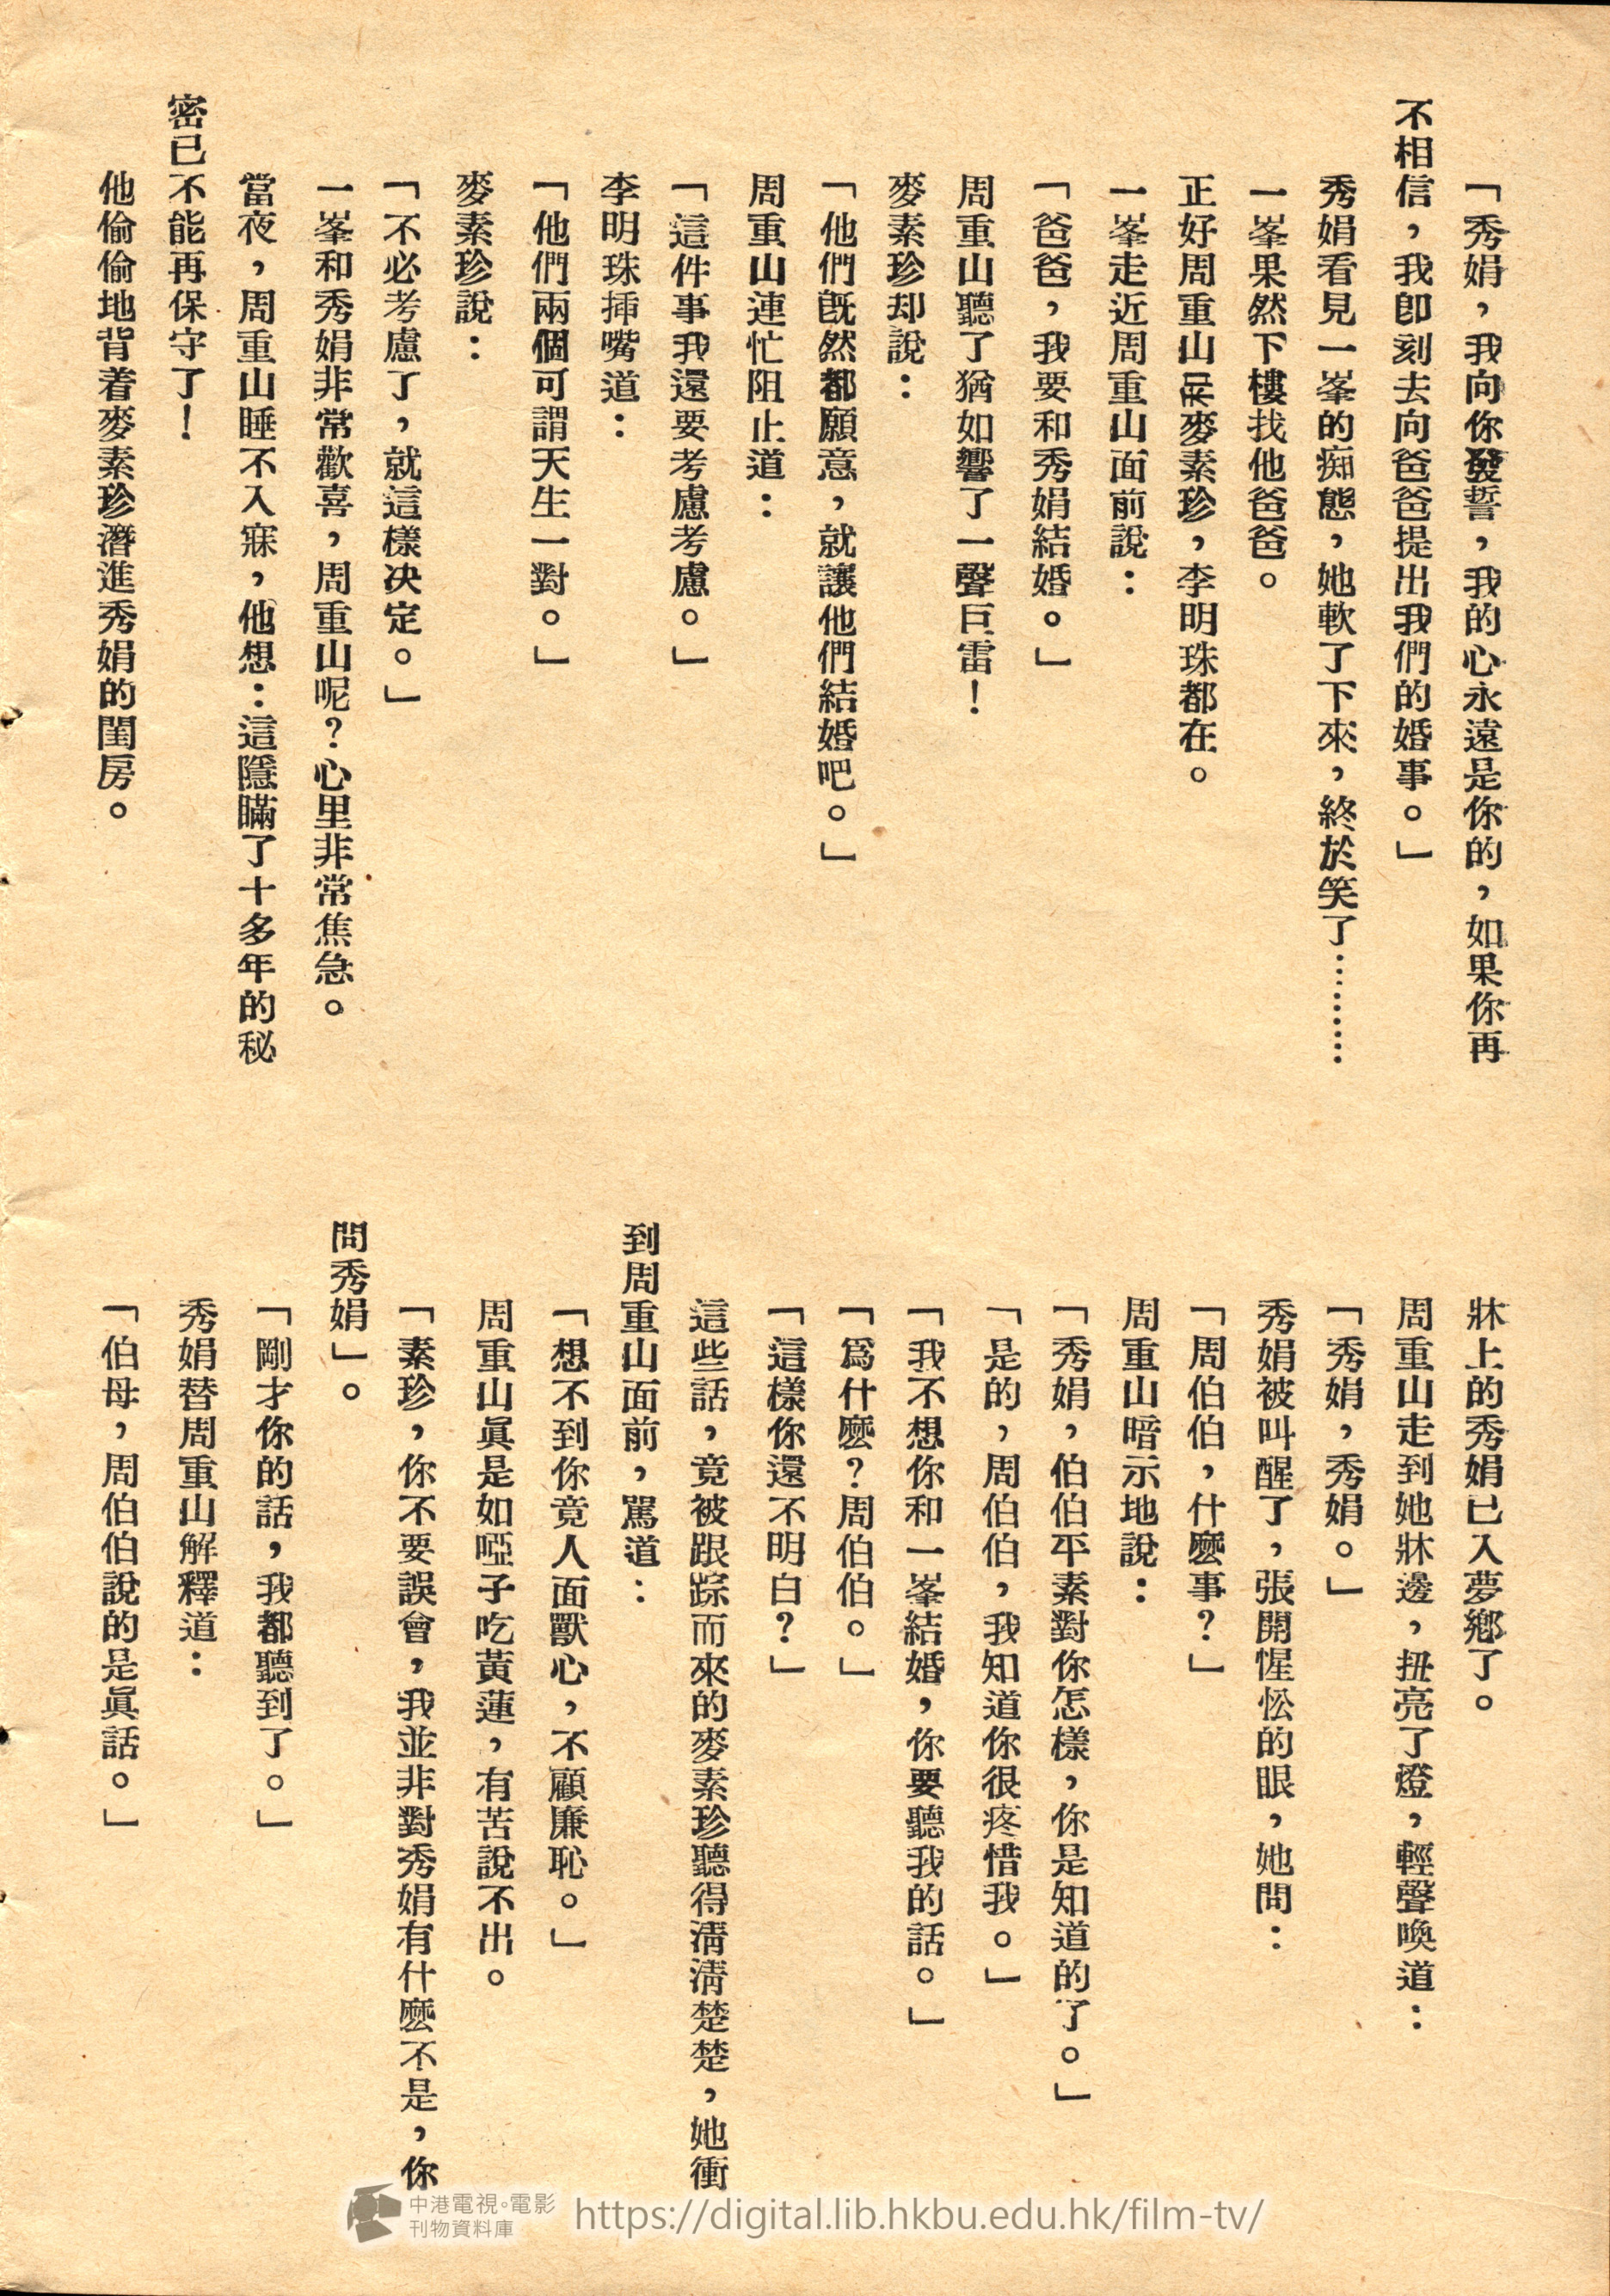 「秀娟，我向你發誓，我的心永遠是你的，如果你再
不相信，我卽刻去向爸爸提出我們的婚事。」
秀娟看見一峯的痴態，她軟了下來，終於笑了………
一峯果然下樓找他爸爸。
正好周重山和麥素珍，李明珠都在。
一峯走近周重山面前說：
「爸爸，我要和秀娟結婚。」
周重山聽了猶如響了一聲巨雷！
麥素珍却說：
「他們旣然都願意，就讓他們結婚吧。」
周重山連忙阻止道：
「這件事我還要考慮考慮。」
李明珠揷嘴道：
「他們兩個可謂天生一對。」
麥素珍說：
「不必考慮了，就這樣决定。」
一峯和秀娟非常歡喜，周重山呢？心里非常焦急。
當夜，周重山睡不入寐，他想：這隱瞞了十多年的秘
密已不能再保守了！
他偷偷地背着麥素珍潛進秀娟的閨房。
牀上的秀娟已入夢鄉了。
周重山走到她牀邊，扭亮了燈，輕聲喚道：
「秀娟，秀娟。」
秀娟被叫醒了，張開惺忪的眼，她問：
「周伯伯，什麽事？」
周重山暗示地說：
「秀娟，伯伯平素對你怎樣，你是知道的了。」
「是的，周伯伯，我知道你很疼惜我。」
「我不想你和一峯結婚，你要聽我的話。」
「爲什麽？周伯伯。」
「這樣你還不明白？」
這些話，竟被跟踪而來的麥素珍聽得淸淸楚楚，她衝
到周重山面前，罵道：
「想不到你竟人面獸心，不顧廉恥。」
周重山眞是如啞子吃黃蓮，有苦說不出。
「素珍，你不要誤會，我並非對秀娟有什麽不是，你
問秀娟」。
「剛才你的話，我都聽到了。」
秀娟替周重山解釋道：
「伯母，周伯伯說的是眞話。」
中港電視。電影
刊物資料庫
https://digital.lib.hkbu.edu.hk/film-tv/